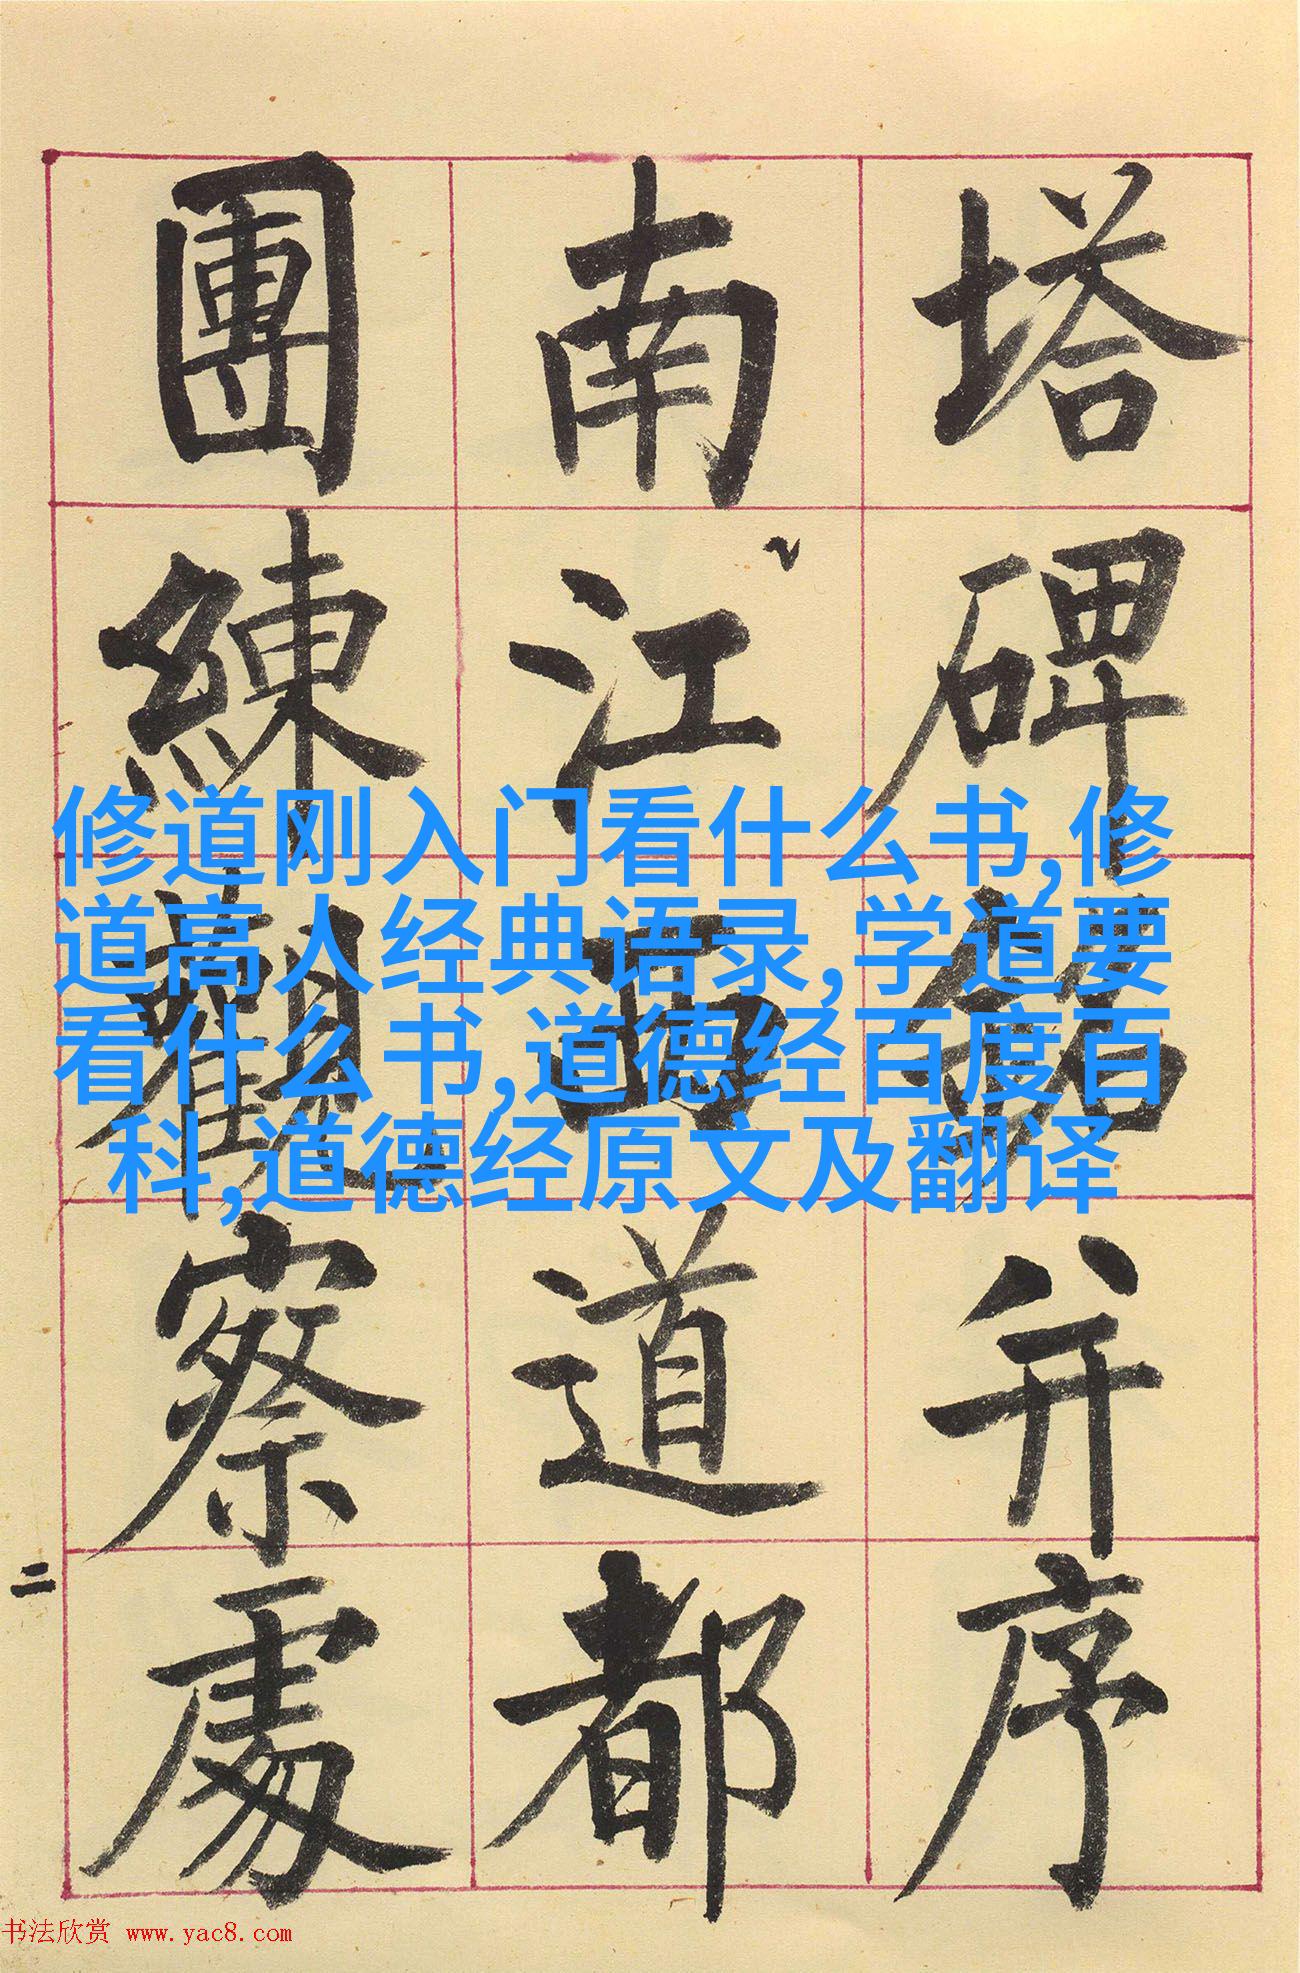 塔碑銘并序
南江西道都
團練觀察處
二
修道刚入门看什么书,修
道高人经典语录,学道要
看什么书,道德经百度百
科,道德经原文及翻译
书法欣赏 www.yac8.com